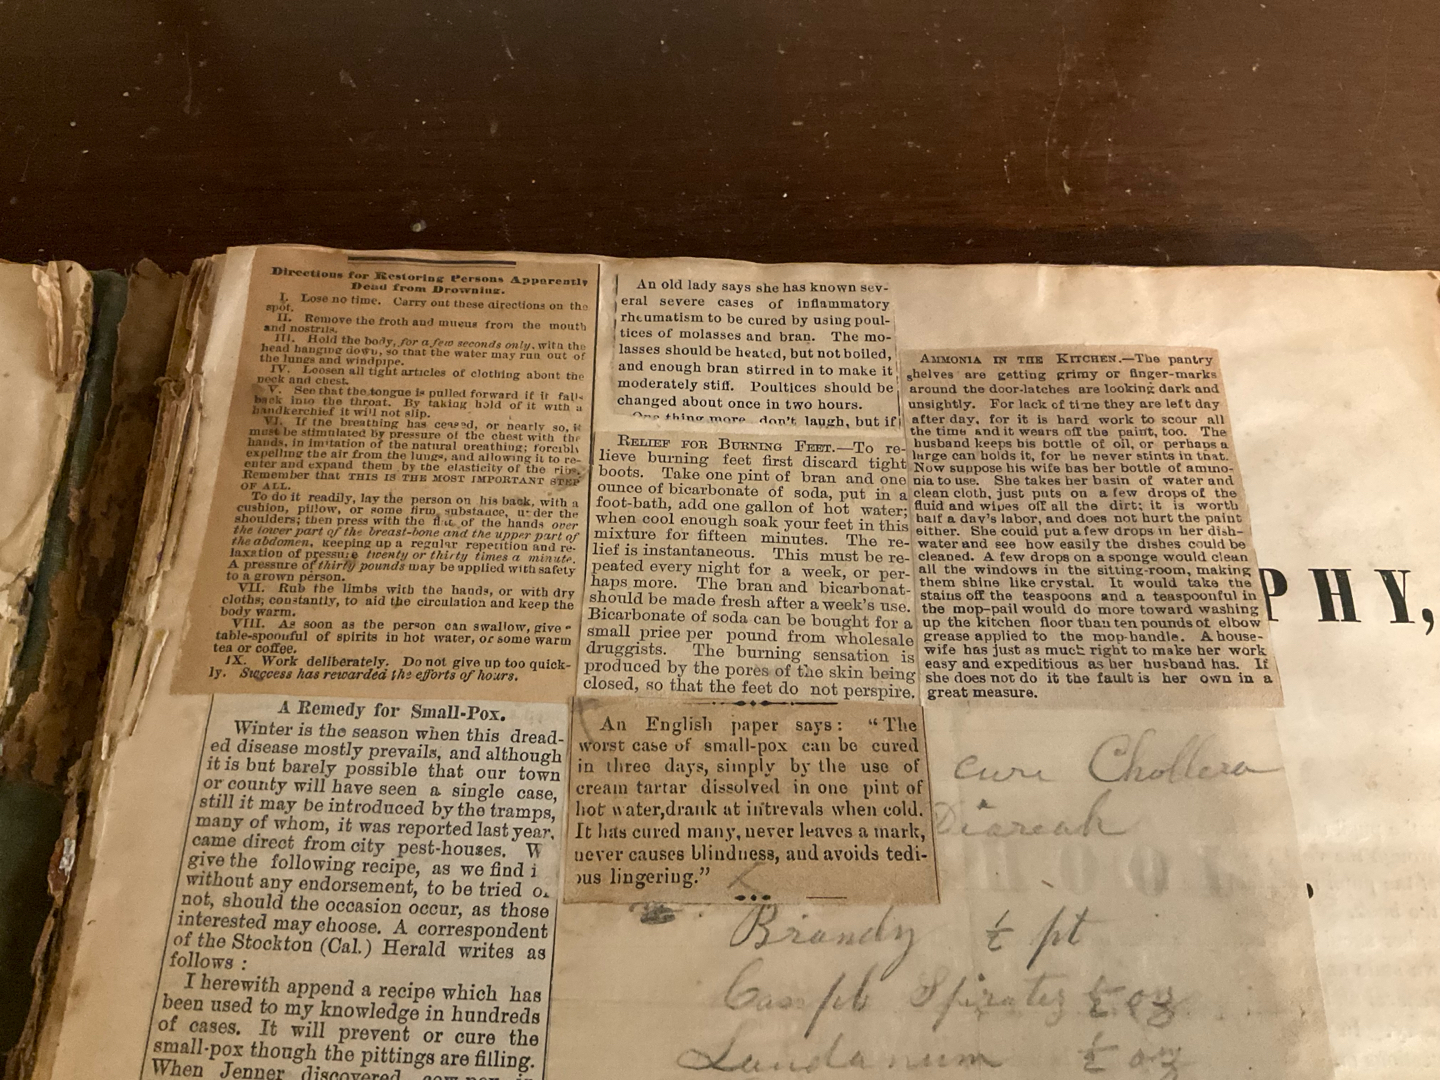 Directions for Restoring Persons Apparently
Dead from Drowning.
I. Lose no time. Carry out these directions on the
spot.
II. Remove the froth and mucus from the mouth
and nostrils.
III. Hold the body, for a few seconds only, with the
head hanging down, so that the water may run out of
the lungs and windpipe.
IV. Loosen all tight articles of clothing about the
neck and chest.
V. See that the tongue is pulled forward if it falls
back into the throat. By taking hold of it with a
handkerchief it will not slip.
VI. If the breathing has ceased, or nearly so, it
must be stimulated by pressure of the chest with the
hands, in imitation of the natural breathing; forcibly
expelling the air from the lungs, and allowing it to re-
enter and expand them by the elasticity of the ribs.
Remember that THIS IS THE MOST IMPORTANT STEP
OF ALL.
To do it readily, lay the person on his back, with a
cushion, pillow, or some firm substance, under the
shoulders; then press with the flat of the hands over
the lower part of the breast-bone and the upper part of
the abdomen, keeping up a regular repetition and re-
laxation of pressure twenty or thirty times a minute.
A pressure of thirty pounds may be applied with safety
to a grown person.
VII. Rub the limbs with the hands, or with dry
cloths, constantly, to aid the circulation and keep the
body warm.
VIII. As soon as the person can swallow, give a
table-spoonful of spirits in hot water, or some warm
tea or coffee.
IX. Work deliberately. Do not give up too quick-
ly. Success has rewarded the efforts of hours.
An old lady says she has known sev-
eral severe cases of inflammatory
rheumatism to be cured by using poul-
tices of molasses and bran. The mo-
lasses should be heated, but not boiled,
and enough bran stirred in to make it
moderately stiff. Poultices should be
changed about once in two hours.
One thing more, don't laugh, but if
RELIEF FOR BURNING FEET.—To re-
lieve burning feet first discard tight
boots. Take one pint of bran and one
ounce of bicarbonate of soda, put in a
foot-bath, add one gallon of hot water;
when cool enough soak your feet in this
mixture for fifteen minutes. The re-
lief is instantaneous. This must be re-
peated every night for a week, or per-
haps more. The bran and bicarbonat-
should be made fresh after a week's use.
Bicarbonate of soda can be bought for a
small price per pound from wholesale
druggists. The burning sensation is
produced by the pores of the skin being
closed, so that the feet do not perspire.
AMMONIA IN THE KITCHEN.—The pantry
shelves are getting grimy or finger-marks
around the door-latches are looking dark and
unsightly. For lack of time they are left day
after day, for it is hard work to scour all
the time and it wears off the paint, too. The
husband keeps his bottle of oil, or perhaps a
large can holds it, for he never stints in that.
Now suppose his wife has her bottle of ammo-
nia to use. She takes her basin of water and
clean cloth, just puts on a few drops of the
fluid and wipes off all the dirt; it is worth
half a day's labor, and does not hurt the paint
either. She could put a few drops in her dish-
water and see how easily the dishes could be
cleaned. A few drops on a sponge would clean
all the windows in the sitting-room, making
them shine like crystal. It would take the
stains off the teaspoons and a teaspoonful in
the mop-pail would do more toward washing
up the kitchen floor than ten pounds of elbow
grease applied to the mop-handle. A house-
wife has just as much right to make her work
easy and expeditious as her husband has. If
she does not do it the fault is her own in a
great measure.
PHY,
A Remedy for Small-Pox.
Winter is the season when this dread-
ed disease mostly prevails, and although
it is but barely possible that our town
or county will have seen a single case,
still it may be introduced by the tramps,
many of whom, it was reported last year,
came direct from city pest-houses. W
give the following recipe, as we find i
without any endorsement, to be tried o
not, should the occasion occur, as those
interested may choose. A correspondent
of the Stockton (Cal.) Herald writes as
follows:
I herewith append a recipe which has
been used to my knowledge in hundreds
of cases. It will prevent or cure the
small-pox though the pittings are filling.
When Jenner discovered cow-pox in
An English paper says: "The
worst case of small-pox can be cured
in three days, simply by the use of
cream tartar dissolved in one pint of
hot water, drank at intrevals when cold.
It has cured many, never leaves a mark,
never causes blindness, and avoids tedi-
ous lingering."
cure Chollera
Diareah
Brandy ½ pt
Camph Spirates ½ oz
Laudanum ½ oz